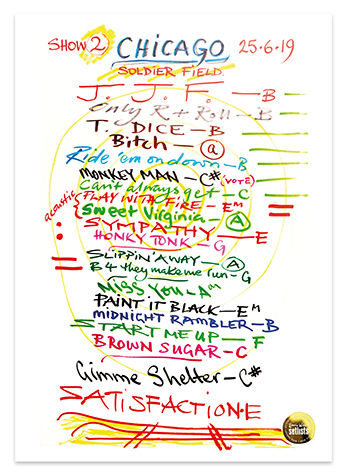 SHOW 2 CHICAGO 25.6.19
SOLDIER FIELD
J. J. F. — B
Only R + Roll — B
T. DICE — B
Bitch — a
Ride 'em on down — B
MONKEY MAN — C# (VOTE)
Can't always get — C
acoustic
PLAY WITH FIRE — Em
Sweet Virginia — A
SYMPATHY — E
HONKY TONK — G
SLIPPIN' AWAY — A
B4 they make me run — G
MISS YOU — Am
PAINT IT BLACK — Em
MIDNIGHT RAMBLER — B
START ME UP — F
BROWN SUGAR — C
Gimme Shelter — C#
SATISFACTION • E
setlists